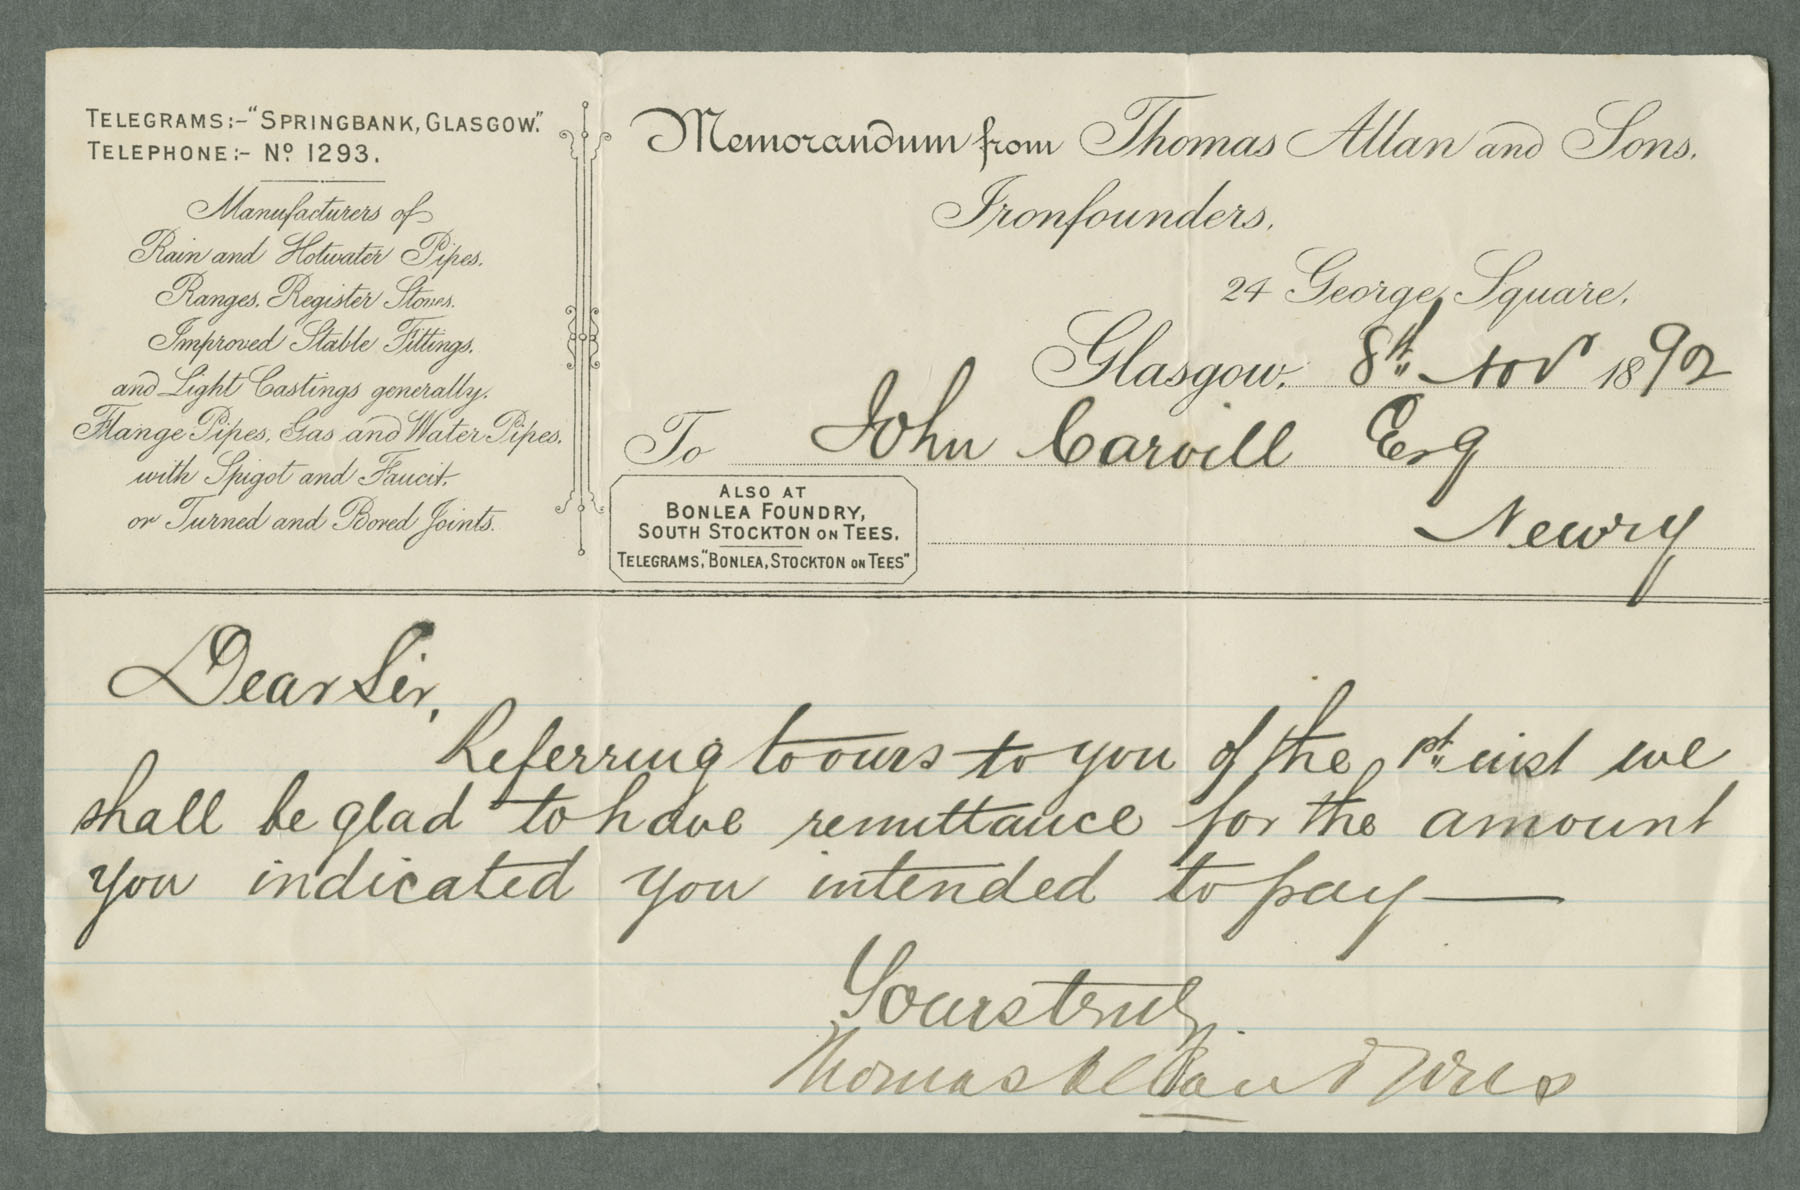 TELEGRAMS:-"SPRINGBANK, GLASGOW."
TELEPHONE:- No 1293.
Manufacturers of
Rain and Hotwater Pipes.
Ranges, Register Stoves.
Improved Stable Fittings.
and Light Castings generally.
Flange Pipes, Gas and Water Pipes.
with Spigot and Faucit,
or Turned and Bored Joints.
Memorandum from Thomas Allan and Sons.
Ironfounders.
24 George Square,
Glasgow, 8th Novr 1892
To John Carvill Esq
Newry
ALSO AT
BONLEA FOUNDRY,
SOUTH STOCKTON ON TEES.
TELEGRAMS, "BONLEA, STOCKTON ON TEES"
Dear Sir,
Referring to ours to you of the 1st inst we
shall be glad to have remittance for the amount
you indicated you intended to pay —
Yours truly
Thomas Allan & Sons